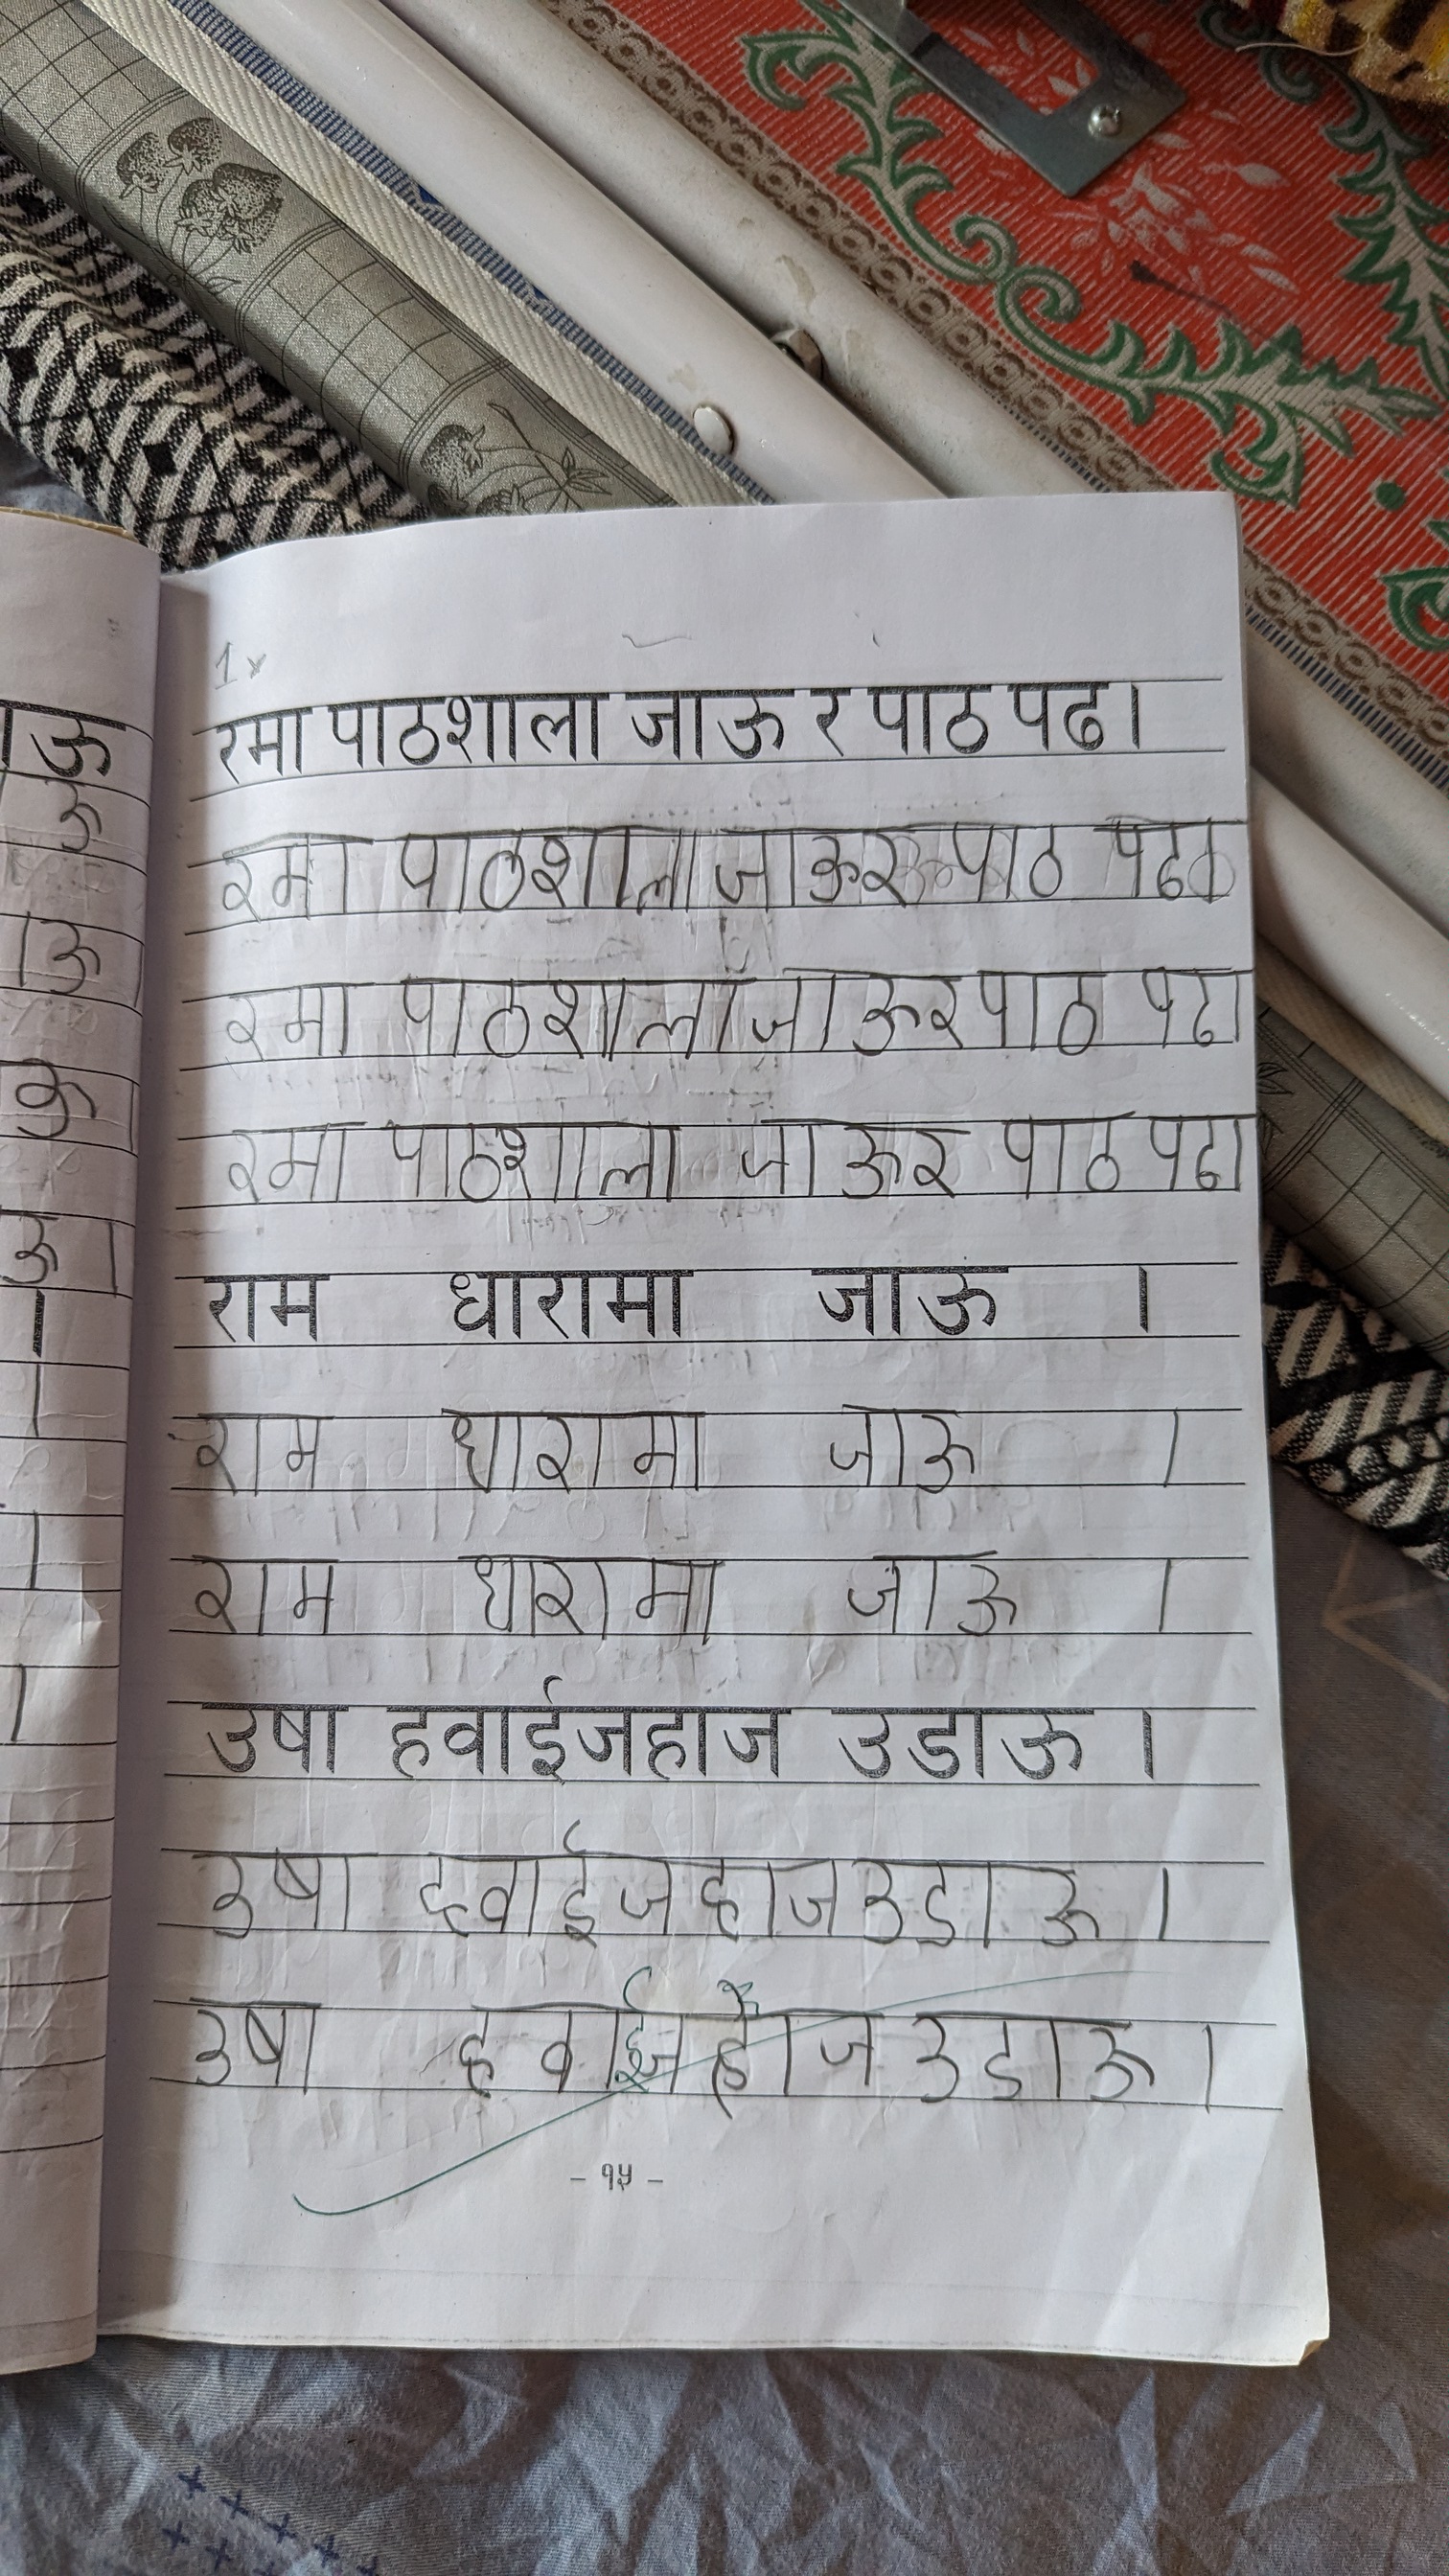 1
रमा पाठशाला जाऊ र पाठ पढ।
रमा पाठशाला जाऊर पाठ पढ।
रमा पाठशाला जाऊर पाठ पढ।
रमा पाठशाला जाऊर पाठ पढ।
राम धारामा जाऊ ।
राम धारामा जाऊ ।
राम धारामा जाऊ ।
उषा हवाईजहाज उडाऊ ।
उषा हवाईजहाज उडाऊ ।
उषा हवाईजहाज उडाऊ ।
- १५ -